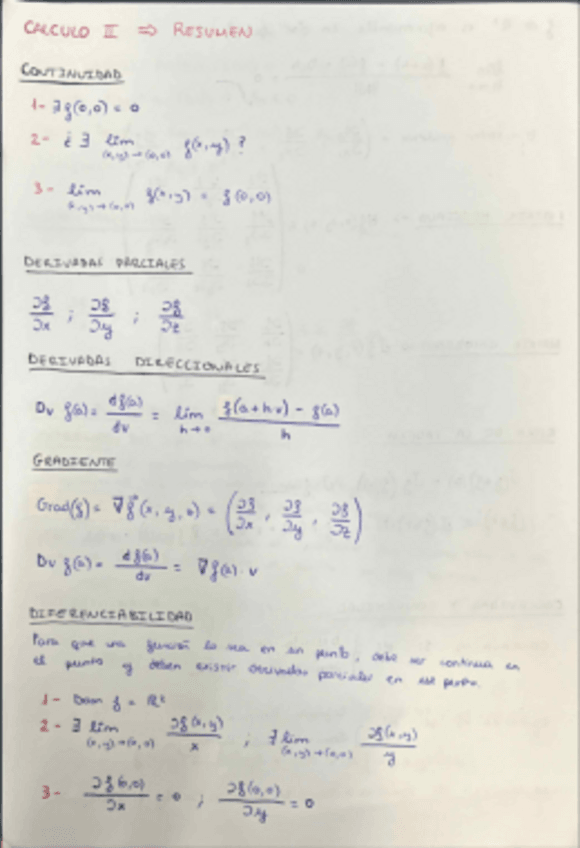 CALCULO II ⇒ RESUMEN
CONTINUIDAD
1- ∃ f(0,0) = 0
2- ¿ ∃ lim (x,y)→(0,0) f(x,y) ?
3- lim (x,y)→(0,0) f(x,y) = f(0,0)
DERIVADAS PARCIALES
∂f/∂x ; ∂f/∂y ; ∂f/∂z
DERIVADAS DIRECCIONALES
Dv f(a) = df(a)/dv = lim h→0 f(a+hv) - f(a) / h
GRADIENTE
Grad(f) = ∇f (x, y, z) = (∂f/∂x, ∂f/∂y, ∂f/∂z)
Dv f(a) = df(a)/dv = ∇f(a) · v
DIFERENCIABILIDAD
Para que una función lo sea en un punto, debe ser continua en
el punto y deben existir derivadas parciales en ese punto.
1- Dom f = ℝ²
2- ∃ lim (x,y)→(0,0) ∂f(x,y)/x ; ∃ lim (x,y)→(0,0) ∂f(x,y)/y
3- ∂f(0,0)/∂x = 0 ; ∂f(0,0)/∂y = 0